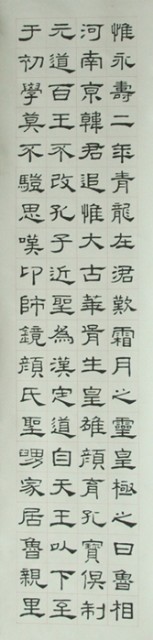 惟永壽二年青龍在涒歎霜月之靈皇極之日魯相
河南京韓君追惟大古華胥生皇雄顏育孔寶俱制
元道百王不改孔子近聖為漢定道自天王以下至
于初學莫不驥思嘆卬師鏡顏氏聖舅家居魯親里